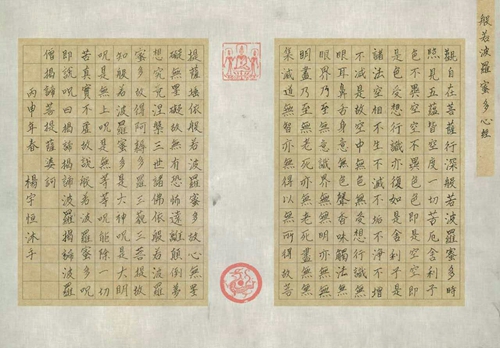 般若波羅蜜多心經
觀自在菩薩行深般若波羅蜜多時
照見五蘊皆空度一切苦厄舍利子
色不異空空不異色色即是空空即
是色受想行識亦復如是舍利子是
諸法空相不生不滅不垢不淨不增
不減是故空中無色無受想行識無
眼耳鼻舌身意無色聲香味觸法無
眼界乃至無意識界無無明亦無無
明盡乃至無老死亦無老死盡無苦
集滅道無智亦無得以無所得故菩
提薩埵依般若波羅蜜多故心無罣
礙無罣礙故無有恐怖遠離顛倒夢
想究竟涅槃三世諸佛依般若波羅
蜜多故得阿耨多羅三藐三菩提故
知般若波羅蜜多是大神咒是大明
咒是無上咒是無等等咒能除一切
苦真實不虛故說般若波羅蜜多咒
即說咒曰揭諦揭諦波羅揭諦波羅
僧揭諦菩提薩婆訶
丙申年春 楊宇恒沐手